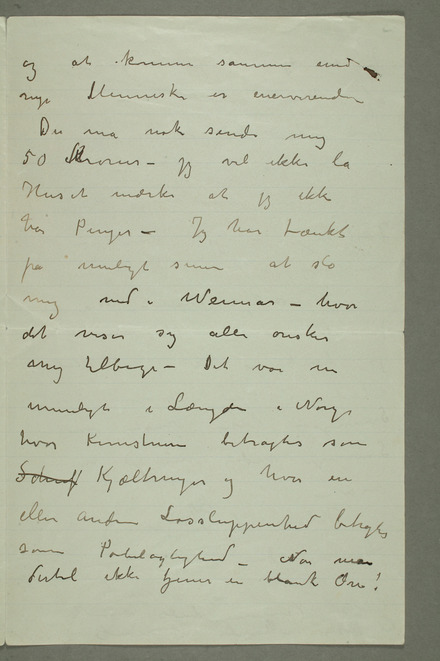 og at komme sammen med
nye Mennesker er enerverende
Du må nok sende mig
50 Kroner – jeg vil ikke la
Huset mærke at jeg ikke
har Penger – Jeg har tænkt
på muligt siden at slå
mig ned i Weimar – hvor
det viser sig alle ønsker
mig tilbage – Det var um
umuligt i Længden i Norge
hvor Kunstnere betragtes som
Kjæltringer og hvor en
eller anden Lossluppenhed betragtes
som – Når man
dertil ikke tjener en blank Øre!